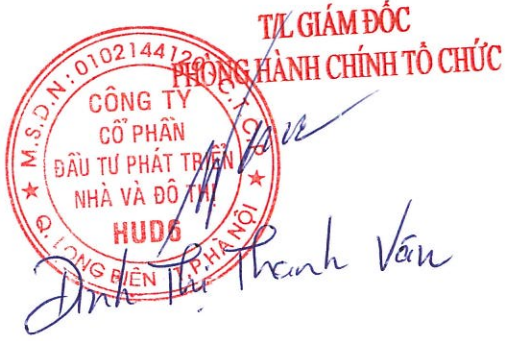 T/L GIÁM ĐỐC
PHÒNG HÀNH CHÍNH TỔ CHỨC
M.S.D.N: 0102144128 - C.T.C.P
CÔNG TY
CỔ PHẦN
ĐẦU TƯ PHÁT TRIỂN
NHÀ VÀ ĐÔ THỊ
HUD6
Q. LONG BIÊN T.P. HÀ NỘI
Đinh Thị Thanh Vân